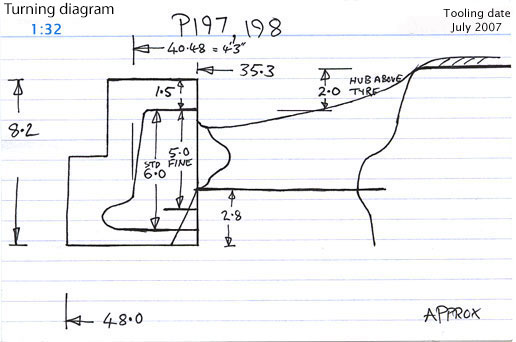 Turning diagram
1:32
P197, 198
Tooling date
July 2007
40.48 = 4'3"
35.3
1.5
2.0
HUB ABOVE
TYRE
8.2
STD
6.0
5.0
FINE
2.8
48.0
APPROX